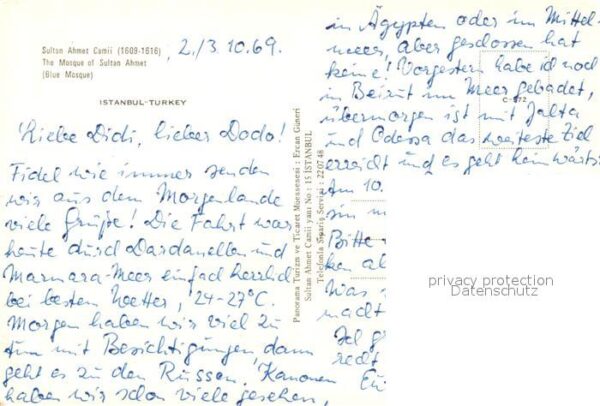 Sultan Ahmet Camii (1609-1616)
The Mosque of Sultan Ahmet
(Blue Mosque)
2./3.10.69.
ISTANBUL-TURKEY
Liebe Didi, lieber Dodo!
Fidel wie immer senden
wir aus dem Morgenlande
viele Grüße! Die Fahrt war
heute durch Dardanellen und
Marmara-Meer einfach herrlich
bei besten Wetter, 24-27°C.
Morgen haben wir viel zu
tun mit Besichtigungen, dann
geht es zu den Russen. Kanonen
haben wir schon viele gesehen,
Panorama Turizm ve Ticaret Müessesesi : Ercan Güneri
Sultan Ahmet Camii yanı No : 15 İSTANBUL
Telefonla Sipariş Servisi : 22 07 48
in Ägypten oder im Mittel-
meer, aber geschossen hat
keine! Vorgestern habe ich noch
in Beirut im Meer gebadet,
C-572
übermorgen ist mit Jalta
und Odessa das weiteste Ziel
erreicht und es geht heimwärts
Am 10.
sin
Bitte
ken
Was
macht
Ich
redt
privacy protection
Datenschutz